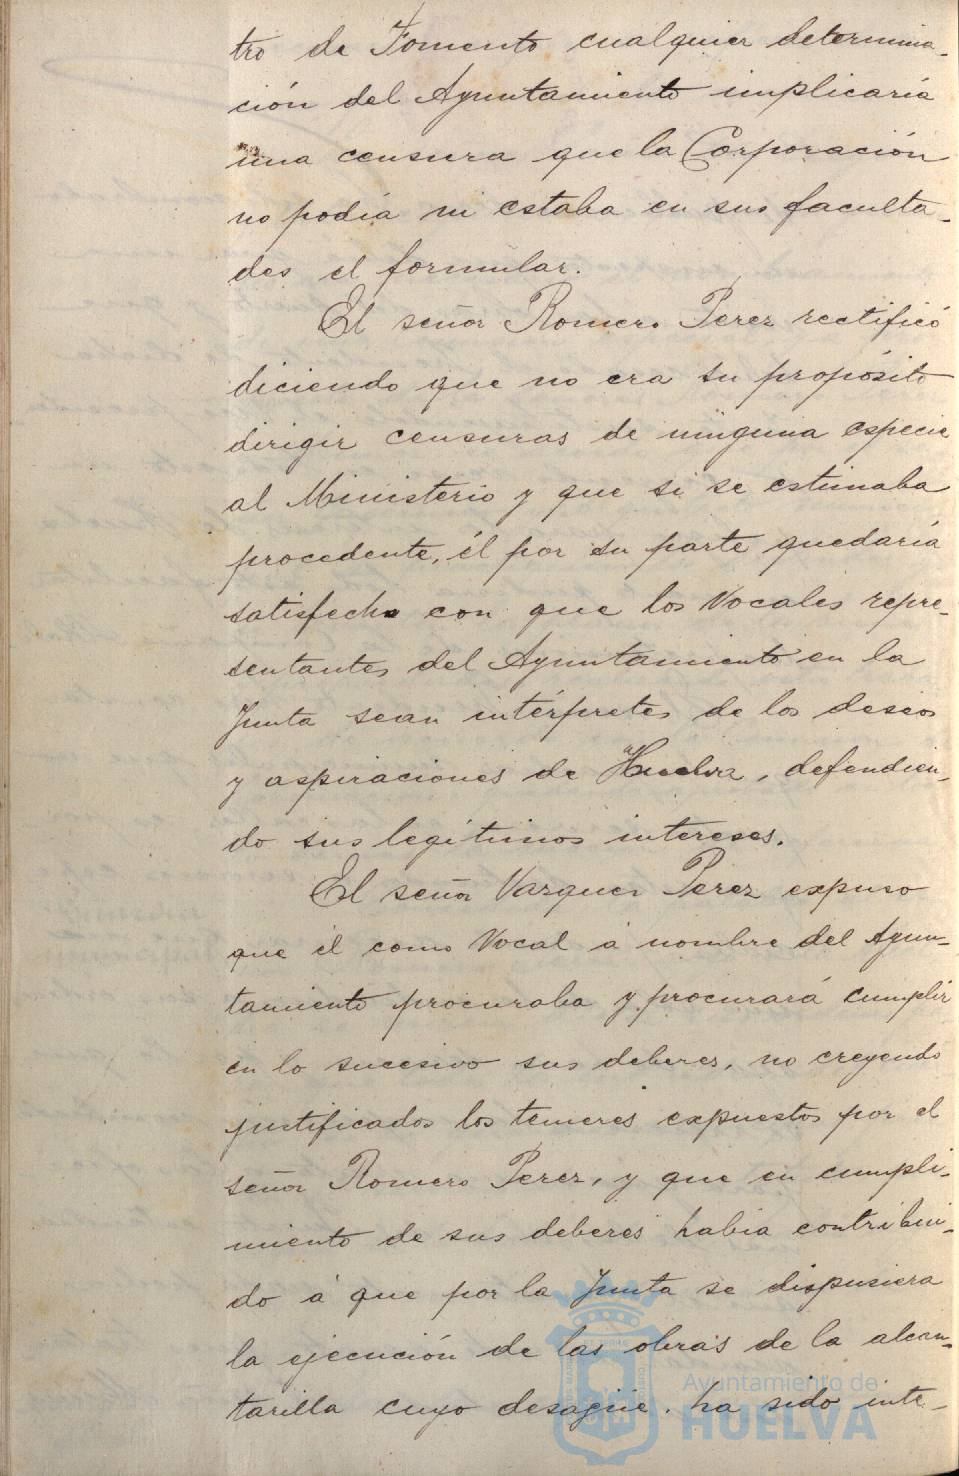 tro de Fomento cualquier determina-
ción del Ayuntamiento implicaría
una censura que la Corporación
no podía ni estaba en sus faculta-
des el formular.
El señor Romero Perez rectificó
diciendo que no era su propósito
dirigir censuras de ninguna especie
al Ministerio y que si se estimaba
procedente, él por su parte quedaría
satisfecho con que los Vocales repre-
sentantes del Ayuntamiento en la
Junta sean intérpretes de los deseos
y aspiraciones de Huelva, defendien-
do sus legítimos intereses.
El señor Vazquez Perez expuso
que él como Vocal á nombre del Ayun-
tamiento procuraba y procurará cumplir
en lo sucesivo sus deberes, no creyendo
justificados los temores expuestos por el
señor Romero Perez, y que en cumpli-
miento de sus deberes habia contribui-
do á que por la Junta se dispusiera
la ejecución de las obras de la alcan-
tarilla cuyo desagüe, ha sido inte-
Ayuntamiento de
HUELVA